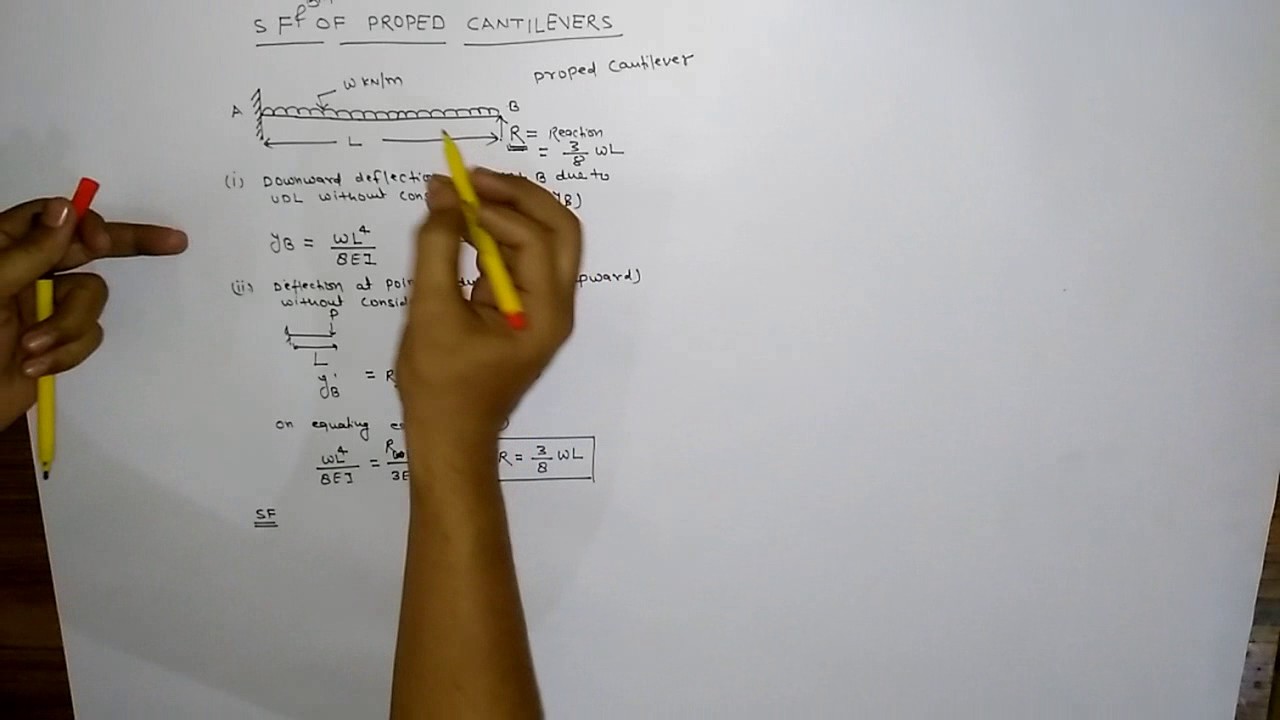 SFf BM OF PROPED CANTILEVERS
proped cantilever
w KN/m
A B
L
R = Reaction
= 3/8 wL
(i) Downward deflection B due to
UDL without (yB)
yB = wL^4/8EI
(ii) Deflection at upward)
without
P
L
y'B = R
on equating
wL^4/8EI = R R = 3/8 wL
SF